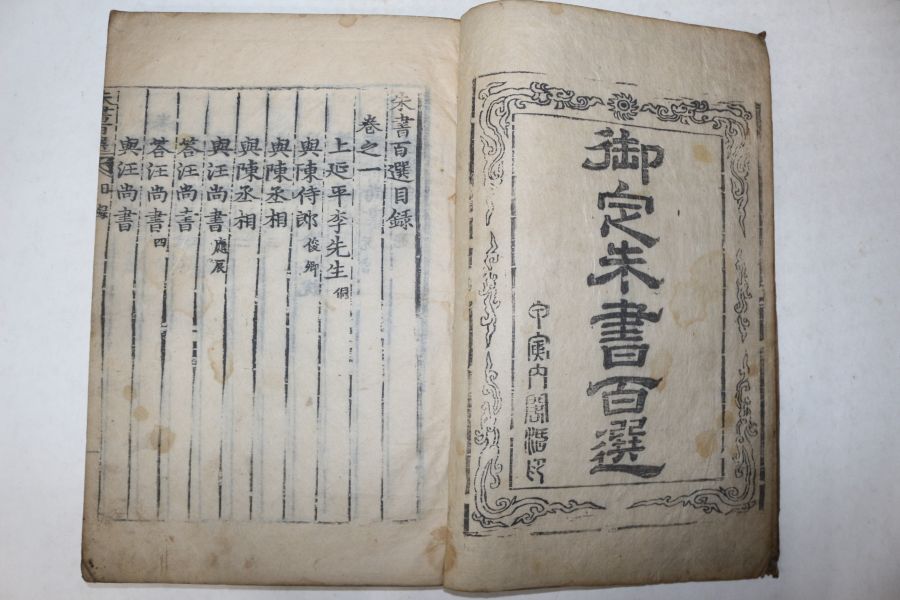 御定朱書百選
甲寅內閣活印
朱書百選目錄
卷之一
上延平李先生 侗
與陳侍郎 俊卿
與陳丞相
與陳丞相
與汪尚書 應辰
荅汪尚書
荅汪尚書 四
與汪尚書
朱書百選 目錄